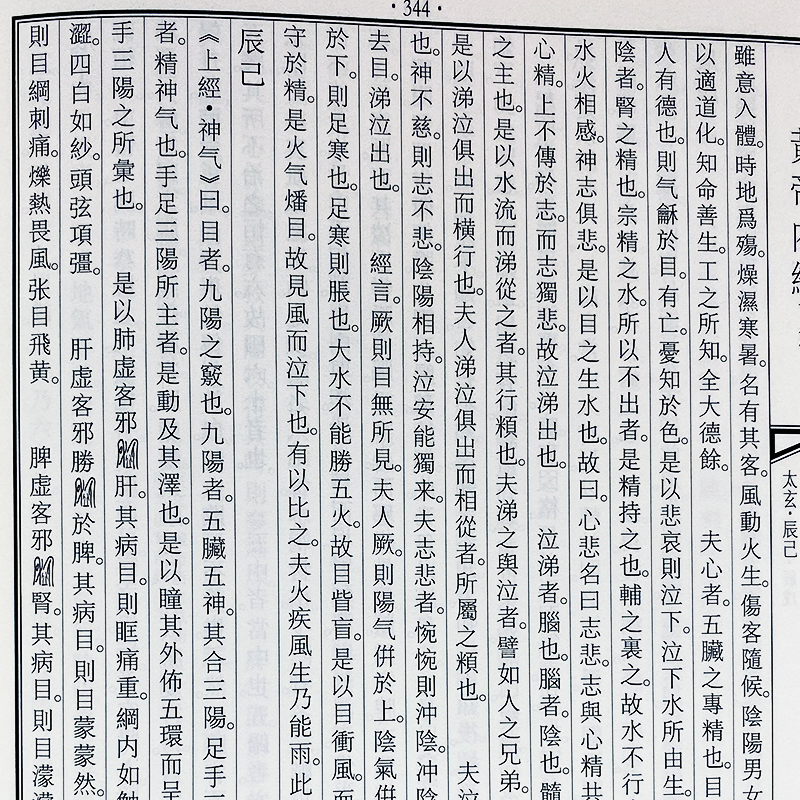 ·344·
黄帝内經
太玄·辰己
雖意入體。時地爲殤。燥濕寒暑。名有其客。風動火生。傷客隨候。陰陽男女
以適道化。知命善生。工之所知。全大德餘。 夫心者。五臟之專精也。目
人有德也。則气龢於目。有亡。憂知於色。是以悲哀則泣下。泣下水所由生。
陰者。腎之精也。宗精之水。所以不出者。是精持之也。輔之裏之。故水不行
水火相感。神志俱悲。是以目之生水也。故曰。心悲名曰志悲。志與心精共
心精。上不傳於志。而志獨悲。故泣涕出也。 泣涕者。腦也。腦者。陰也。髓
之主也。是以水流而涕從之者。其行䫶也。夫涕之與泣者。譬如人之兄弟。
是以涕泣俱出而横行也。夫人涕泣俱出而相從者。所屬之䫶也。 夫泣
也。神不慈。則志不悲。陰陽相持。泣安能獨来。夫志悲者。惋惋則沖陰。冲陰
去目。涕泣出也。 經言。厥則目無所見。夫人厥。則陽气併於上。陰氣併
於下。則足寒也。足寒則脹也。大水不能勝五火。故目眥盲。是以目衝風。而
守於精。是火气燔目。故見風而泣下也。有以比之。夫火疾風生乃能雨。此
辰己
《上經·神气》曰。目者。九陽之竅也。九陽者。五臟五神。其合三陽。足手三
者。精神气也。手足三陽所主者。是動及其澤也。是以瞳其外佈五環而呈
手三陽之所彙也。 是以肺虚客邪肝。其病目。則眶痛重。綱内如
澀。四白如紗。頭弦項彊。 肝虚客邪勝於脾。其病目。則目蒙蒙然。
則目綱刺痛。爍熱畏風。张目飛黄。 脾虚客邪腎。其病目。則目濛濛